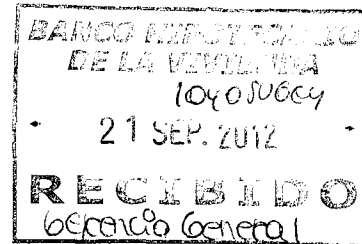 BANCO HIPOTECARIO
DE LA VIVIENDA
21 SEP. 2012
RECIBIDO
Gerencia General